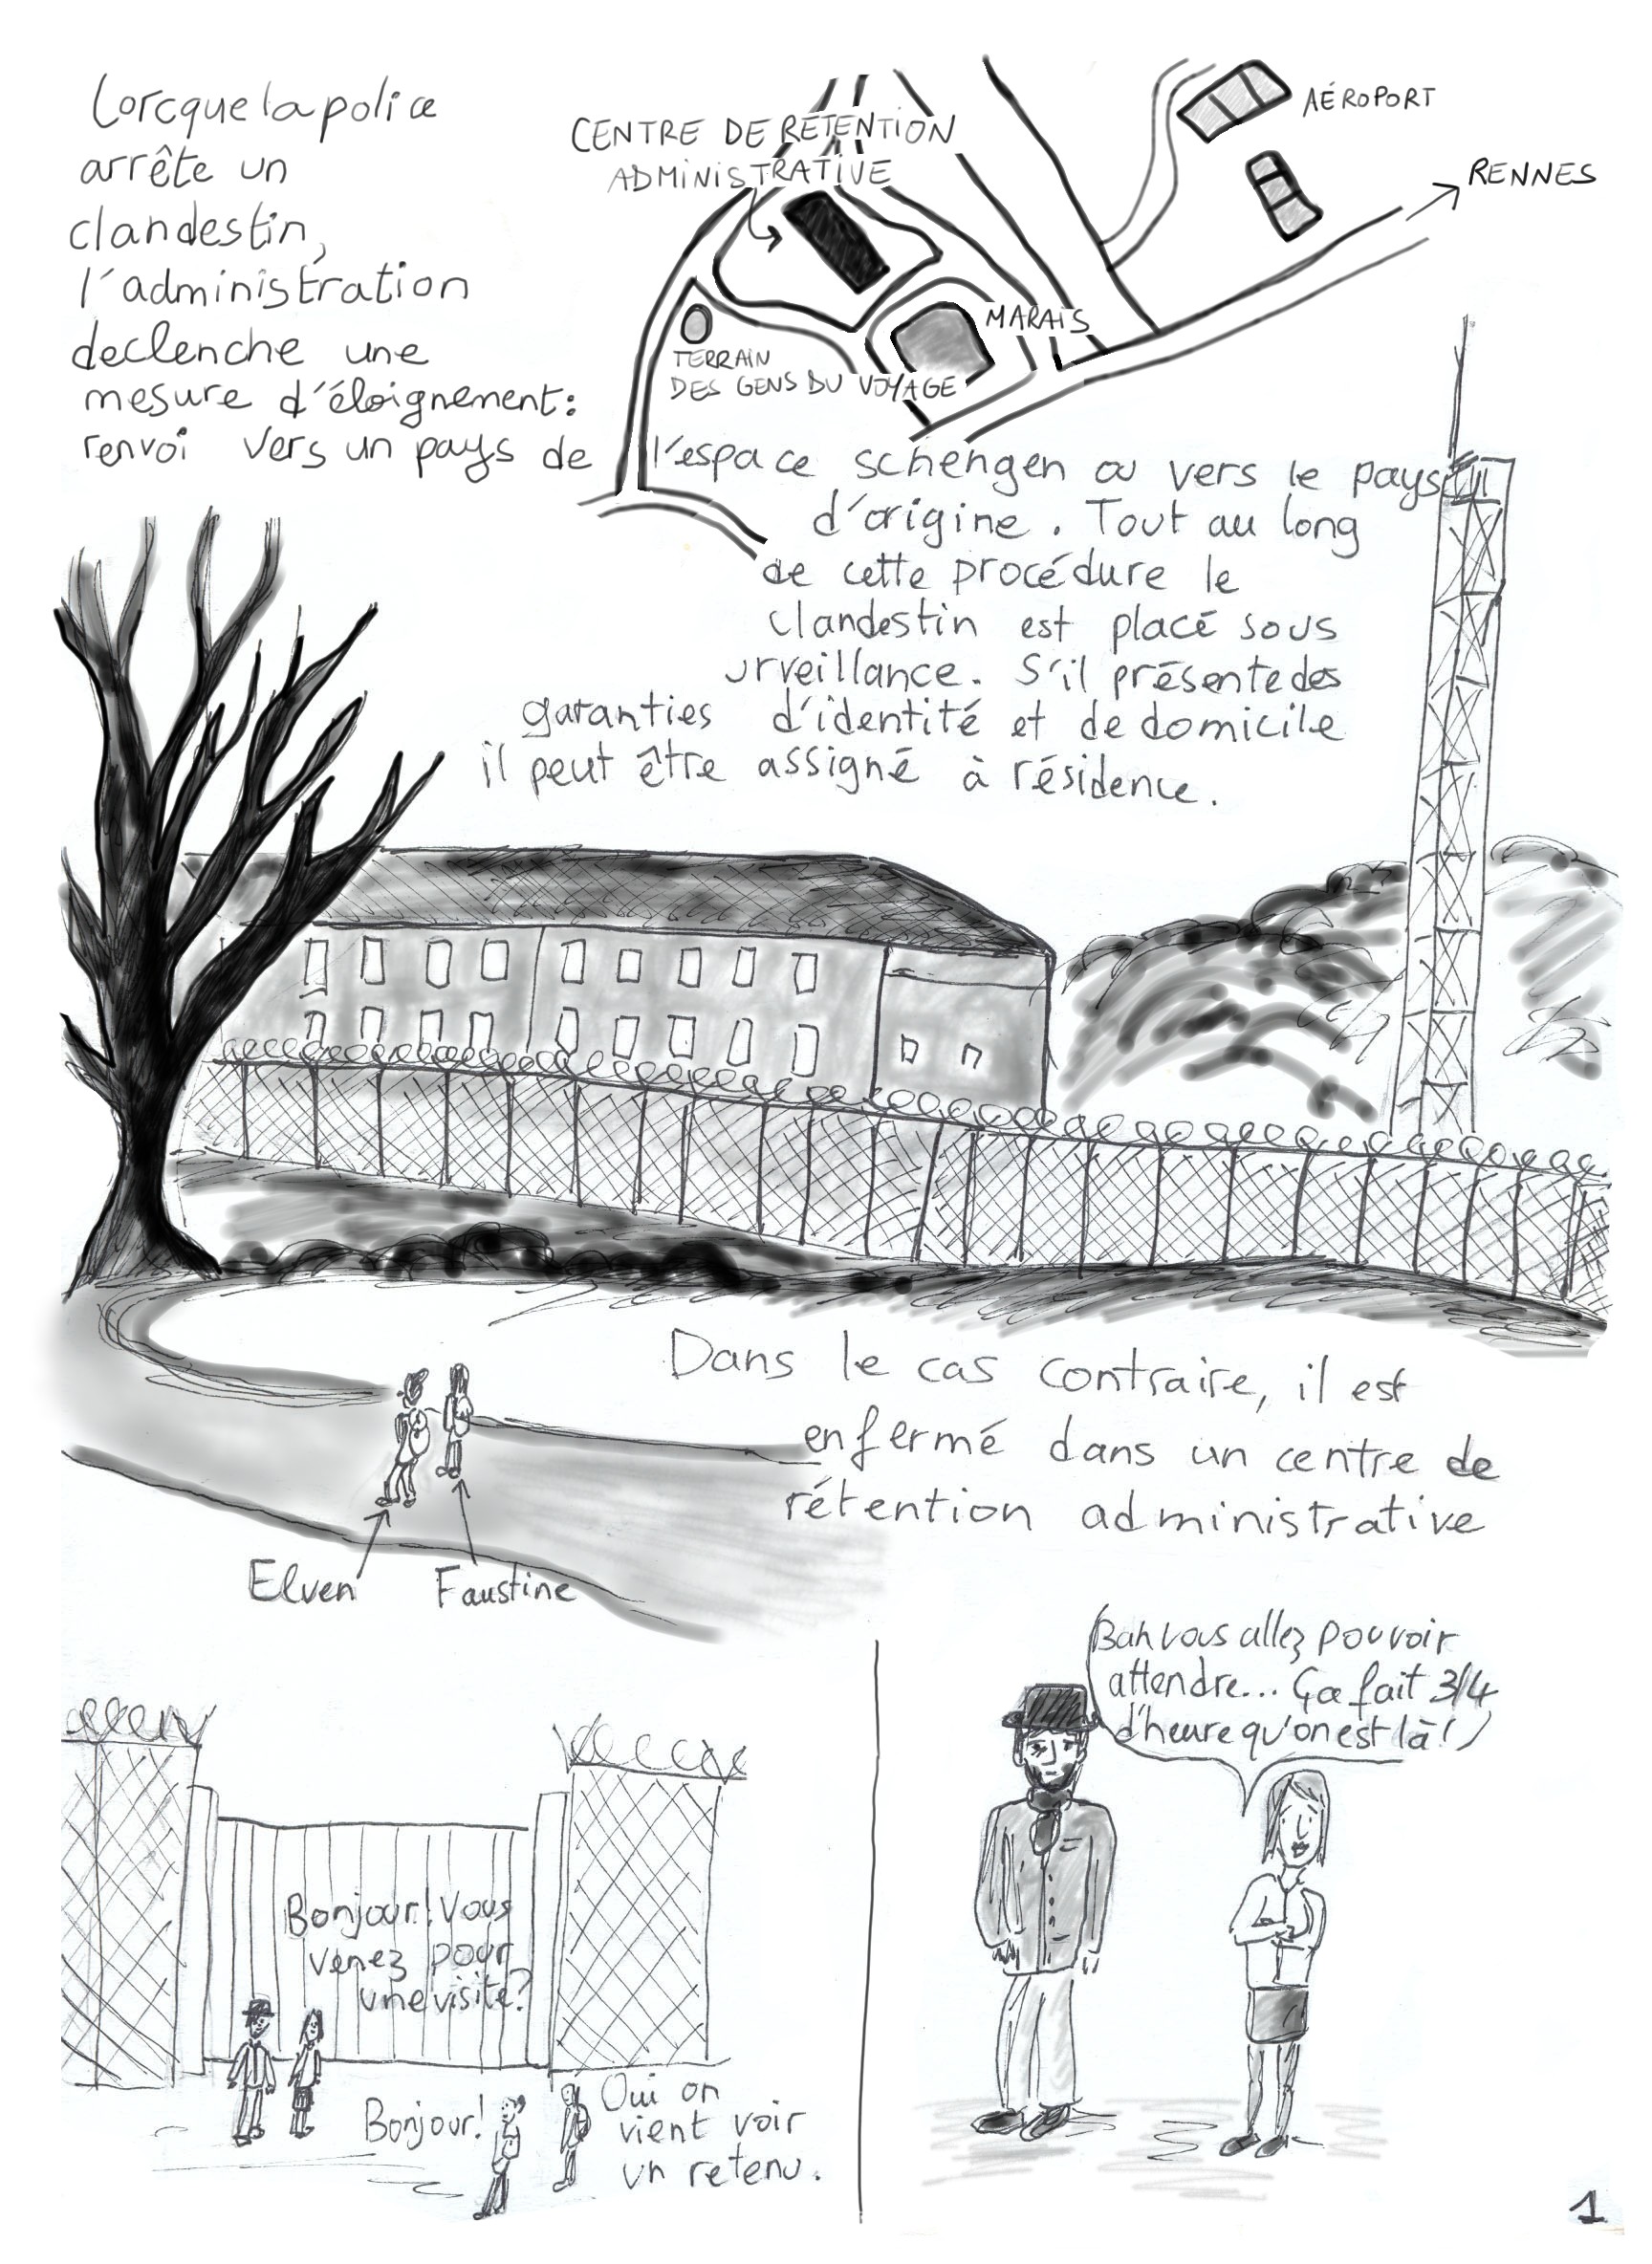 Lorcque la police
arrête un
clandestin,
l'administration
declenche une
mesure d'éloignement:
renvoi vers un pays de l'espace schengen ou vers le pays
d'origine. Tout au long
de cette procédure le
clandestin est placé sous
urveillance. S'il présente des
garanties d'identité et de domicile
il peut être assigné à résidence.
CENTRE DE RÉTENTION
ADMINISTRATIVE
AÉROPORT
RENNES
MARAIS
TERRAIN
DES GENS DU VOYAGE
Dans le cas contraire, il est
enfermé dans un centre de
rétention administrative
Elven
Faustine
Bonjour! Vous
venez pour
une visite?
Bonjour!
Oui on
vient voir
un retenu.
Bah vous allez pouvoir
attendre... Ça fait 3/4
d'heure qu'on est là!
1